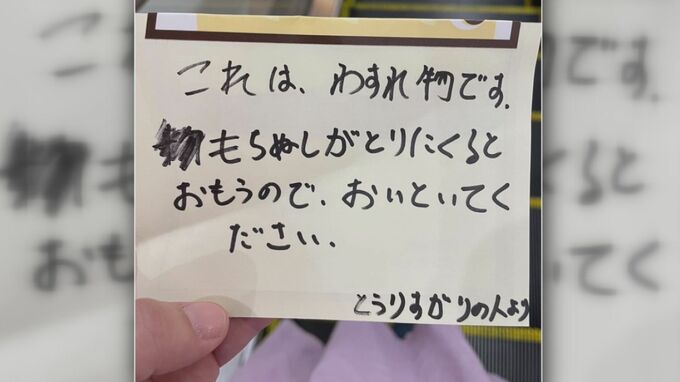 これは、わすれ物です。
もちぬしがとりにくると
おもうので、おいといてく
ださい。
とうりすがりの人より